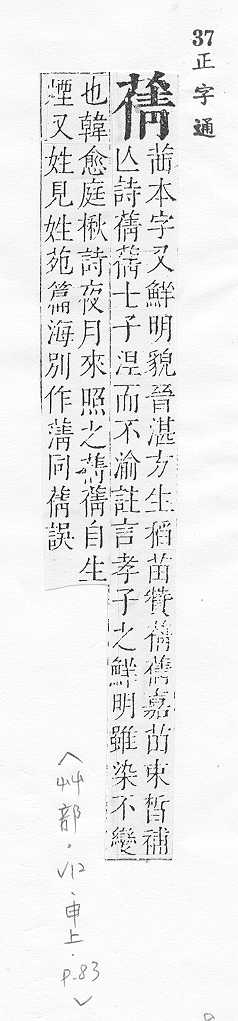 37
正字通
蒨
茜本字又鮮明貌晉湛方生稻苗贊蒨蒨嘉苗束晳補
亾詩蒨蒨士子涅而不渝註言孝子之鮮明雖染不變
也韓愈庭楸詩夜月來照之蒨蒨自生
煙又姓見姓苑篇海別作蔳同蒨誤
〈艸部.V12.申上.p.83〉